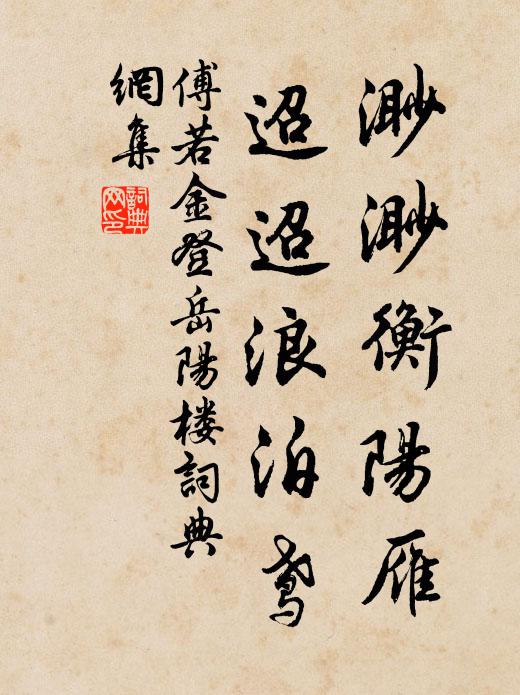 渺渺衡陽雁
迢迢浪泊鳶
傅若金登岳陽楼詞典
網集
詞典
网印